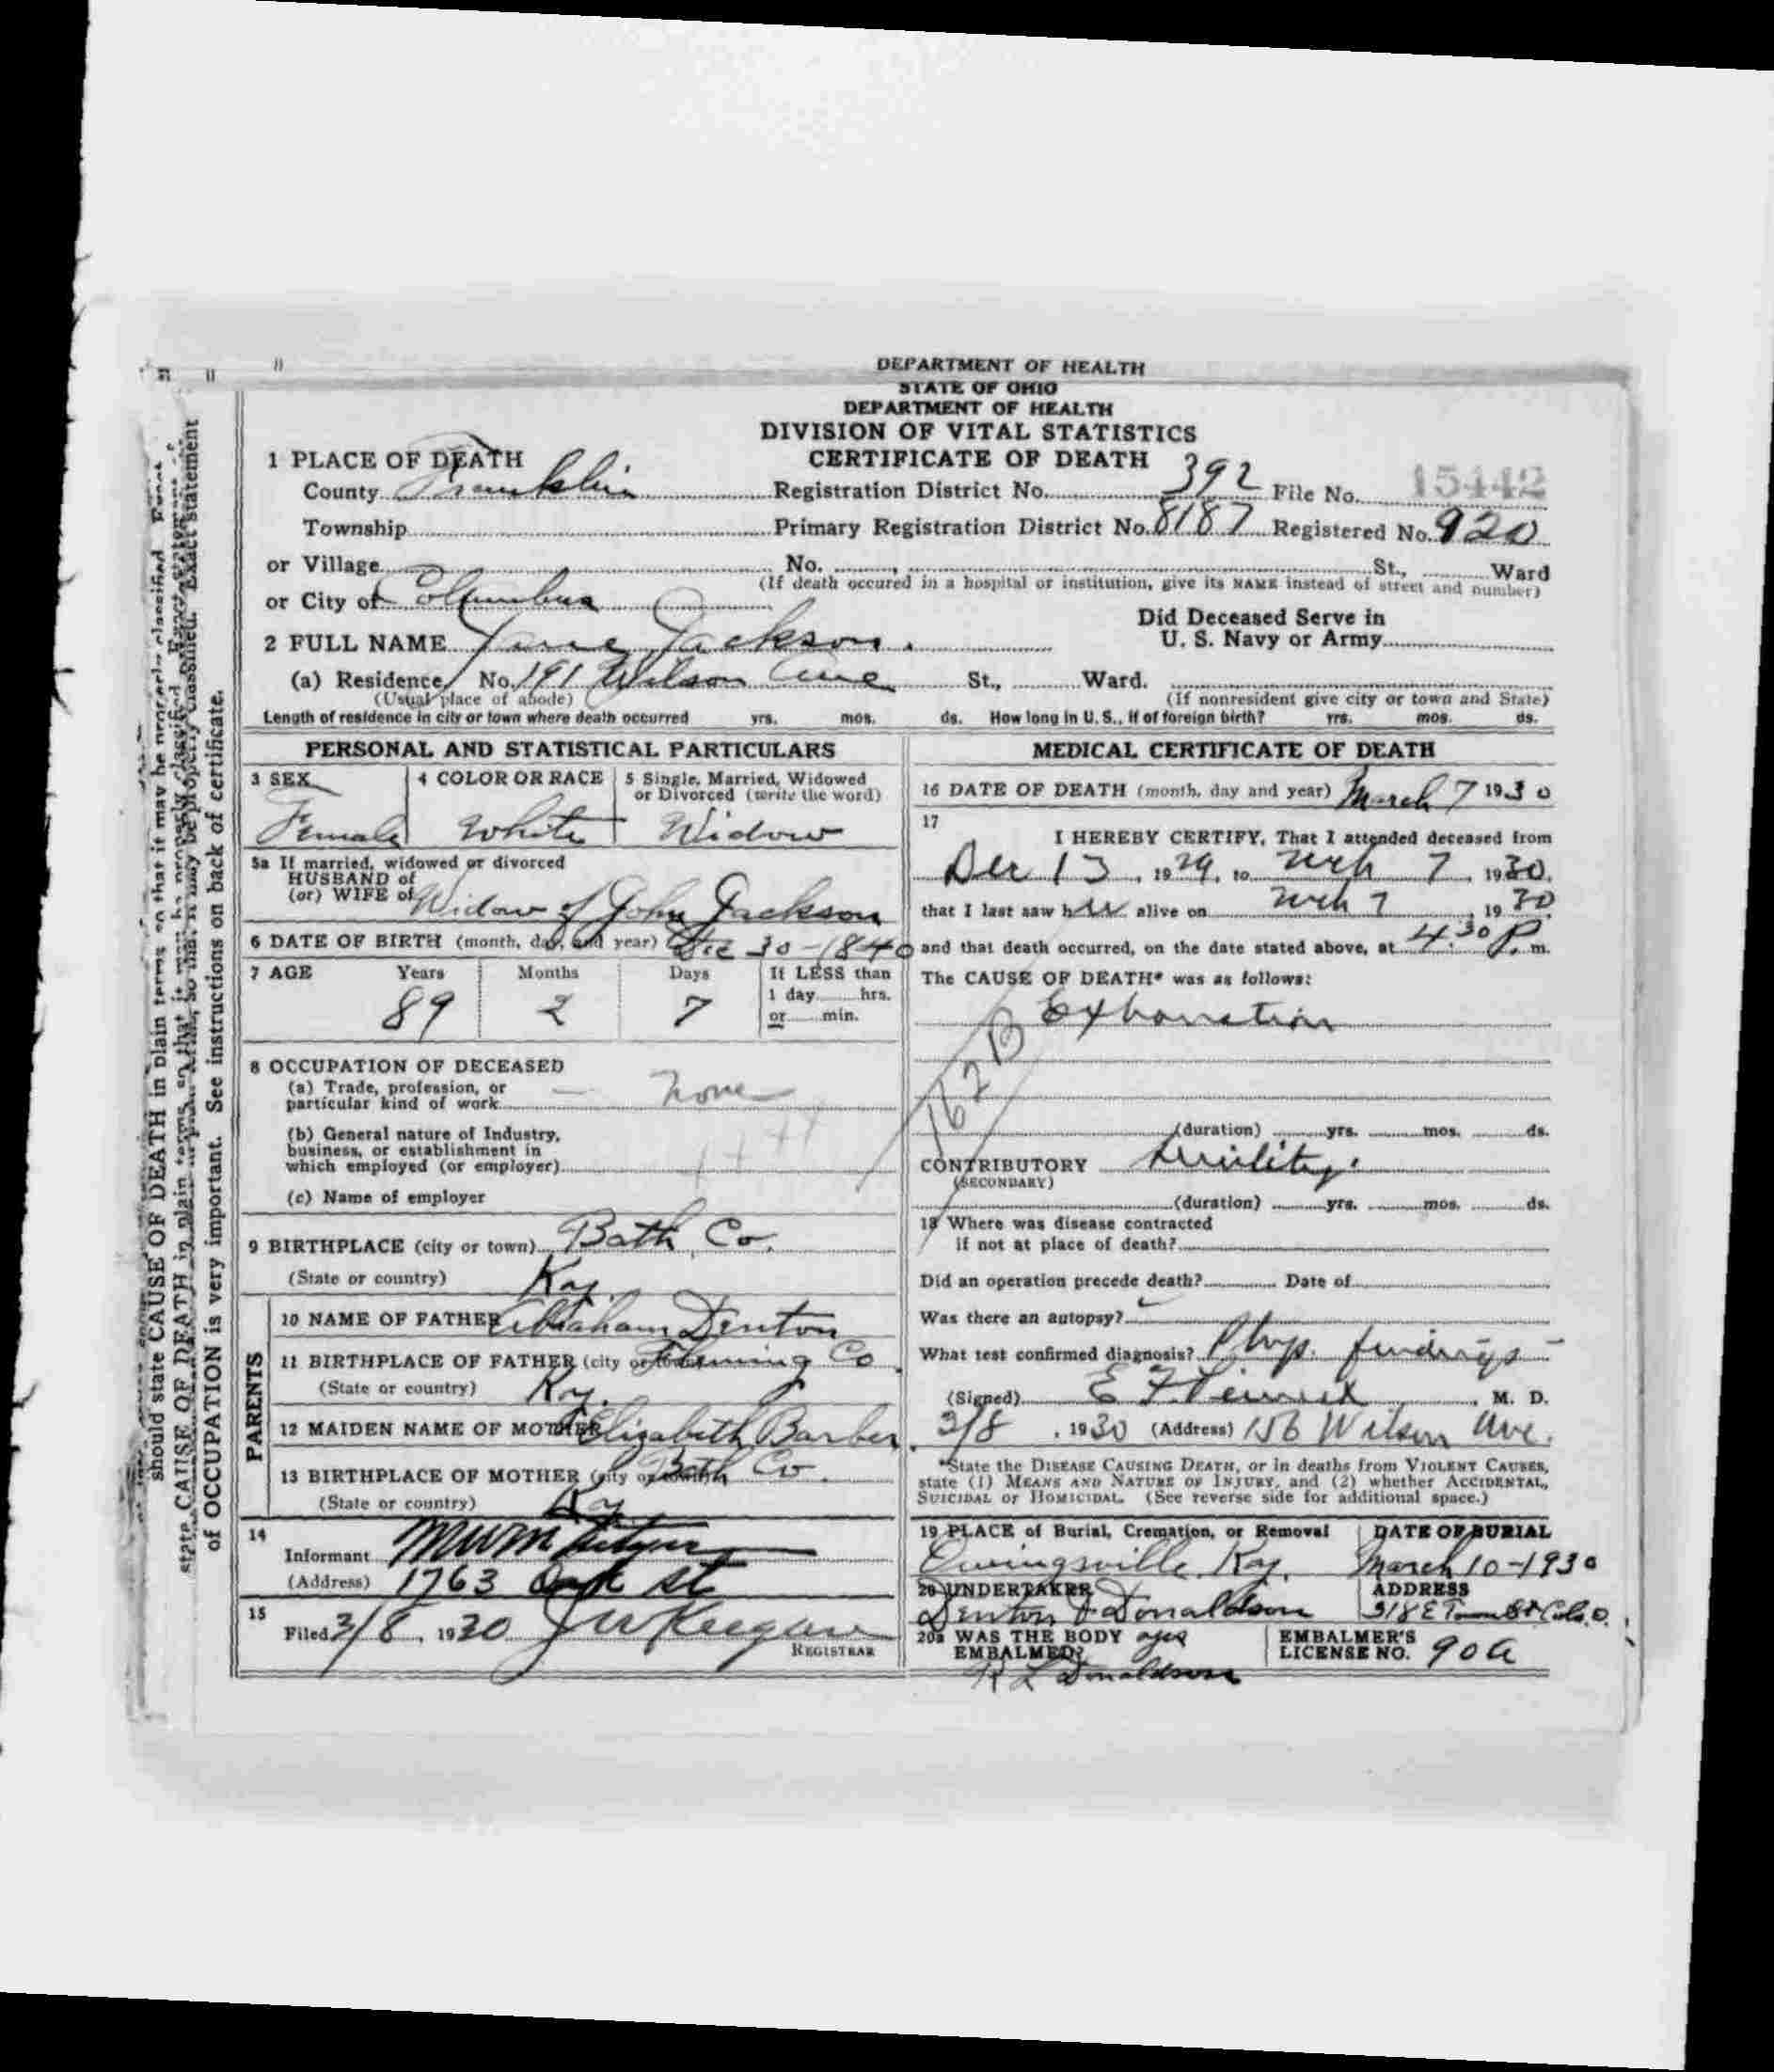 DEPARTMENT OF HEALTH
STATE OF OHIO
DEPARTMENT OF HEALTH
DIVISION OF VITAL STATISTICS
CERTIFICATE OF DEATH
1 PLACE OF DEATH
County Franklin Registration District No. 392 File No. 15442
Township Primary Registration District No. 8187 Registered No. 920
or Village No. , St., Ward
(If death occured in a hospital or institution, give its NAME instead of street and number)
or City of Columbus
Did Deceased Serve in
U. S. Navy or Army
2 FULL NAME Jane Jackson.
(a) Residence No. 191 Wilson Ave St., Ward.
(Usual place of abode) (If nonresident give city or town and State)
Length of residence in city or town where death occurred yrs. mos. ds. How long in U. S., if of foreign birth? yrs. mos. ds.
PERSONAL AND STATISTICAL PARTICULARS
3 SEX 4 COLOR OR RACE 5 Single, Married, Widowed
or Divorced (write the word)
Female White Widow
5a If married, widowed or divorced
HUSBAND of
(or) WIFE of Widow of John Jackson
6 DATE OF BIRTH (month, day, and year) Dec 30-1840
7 AGE Years Months Days If LESS than
1 day hrs.
or min.
89 2 7
8 OCCUPATION OF DECEASED
(a) Trade, profession, or
particular kind of work — None
(b) General nature of Industry,
business, or establishment in
which employed (or employer)
(c) Name of employer
9 BIRTHPLACE (city or town) Bath Co.
(State or country) Ky.
PARENTS
10 NAME OF FATHER Abraham Denton
11 BIRTHPLACE OF FATHER (city or town) Fleming Co.
(State or country) Ky.
12 MAIDEN NAME OF MOTHER Elizabeth Barber
13 BIRTHPLACE OF MOTHER (city or town) Bath Co.
(State or country) Ky.
14
Informant
(Address) 1763 Oak St
15
Filed 3/8, 1930 J W Keegan
REGISTRAR
MEDICAL CERTIFICATE OF DEATH
16 DATE OF DEATH (month, day and year) March 7 1930
17
I HEREBY CERTIFY, That I attended deceased from
Dec 13, 1929, to Mch 7, 1930,
that I last saw her alive on Mch 7, 1930
and that death occurred, on the date stated above, at 4:30 P. m.
The CAUSE OF DEATH* was as follows:
Exhaustion
162 B
(duration) yrs. mos. ds.
CONTRIBUTORY Senility.
(SECONDARY)
(duration) yrs. mos. ds.
18 Where was disease contracted
if not at place of death?
Did an operation precede death? Date of
Was there an autopsy?
What test confirmed diagnosis? Phys. findings
(Signed) E F , M. D.
3/8, 1930 (Address) 156 Wilson Ave.
*State the DISEASE CAUSING DEATH, or in deaths from VIOLENT CAUSES,
state (1) MEANS AND NATURE OF INJURY, and (2) whether ACCIDENTAL,
SUICIDAL or HOMICIDAL. (See reverse side for additional space.)
19 PLACE of Burial, Cremation, or Removal DATE OF BURIAL
Owingsville, Ky. March 10-1930
20 UNDERTAKER ADDRESS
Denton & Donaldson 318 E Town St Colo. O.
20a WAS THE BODY yes
EMBALMED?
EMBALMER'S
LICENSE NO. 90a
R L Donaldson
should state CAUSE OF DEATH in plain terms so that it may be properly classified. Exact statement
of OCCUPATION is very important. See instructions on back of certificate.